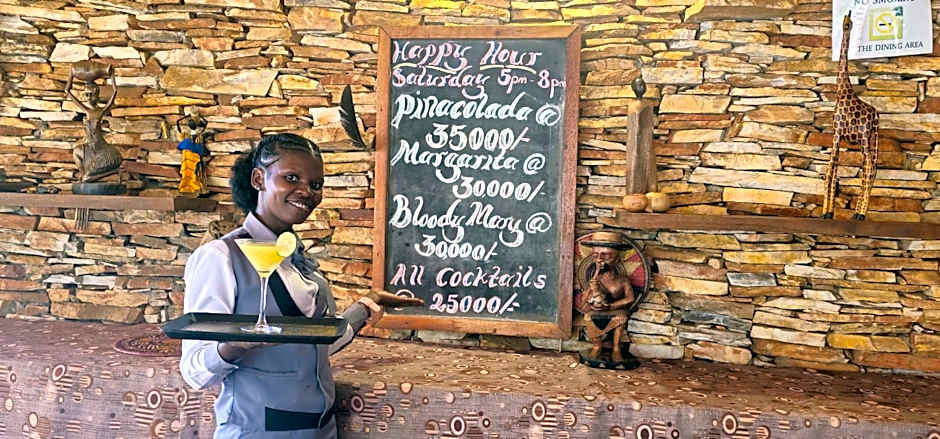 NO SMOKING
THE DINING AREA
Happy Hour
Saturday 5pm-8pm
Pinacolada @
35000/-
Margarita @
30000/-
Bloody Mary @
30000/-
All Cocktails
25000/-